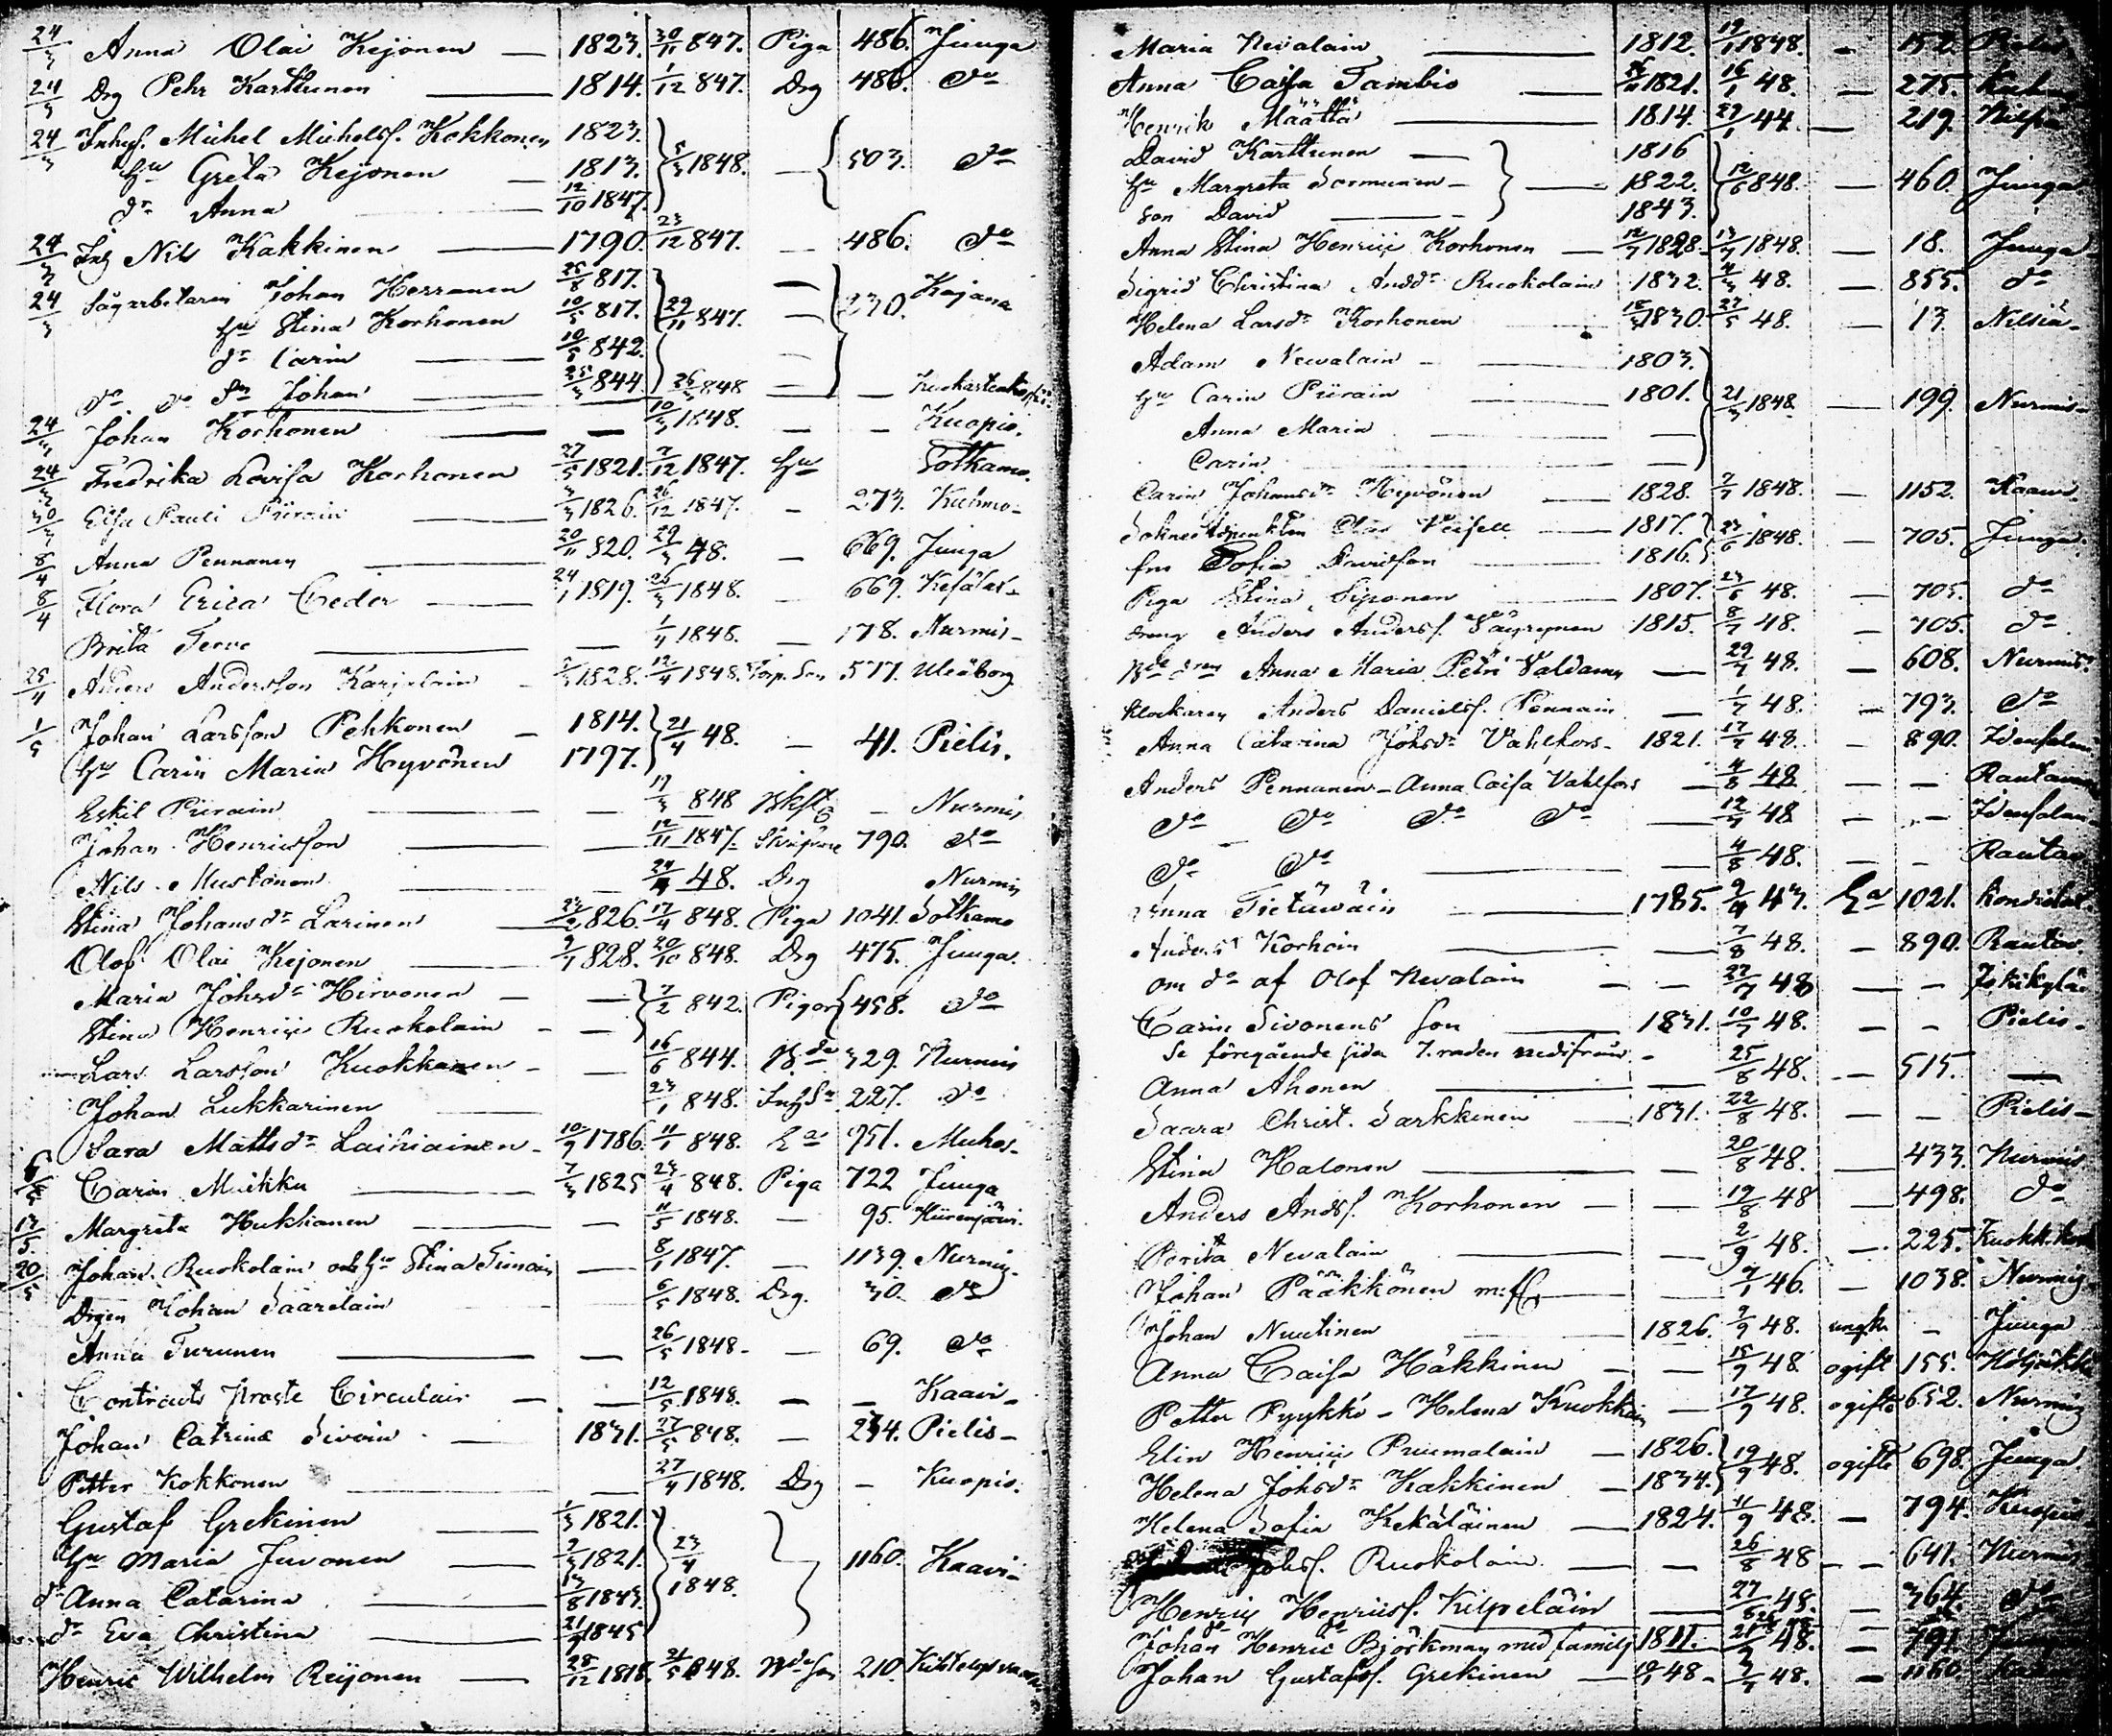 24/3 Anna Olai Kejonen — 1823. 30/11 847. Piga 486. Junga
24/3 Drg Pehr Karttunen — 1814. 1/12 847. Drg 486. do
24/3 Inhys. Michel Michelsf. Kokkonen 1823.
hu Greta Kejonen — 1813. 5/3 1848. — 503. do
dr Anna 12/10 1847.
24/3 Inh Nils Kakkinen — 1790. 23/12 847. — 486. do
24/3 Sågarbetaren Johan Herranen 25/8 817. —
hu Stina Korhonen 10/5 817. 29/11 847. — 230. Kajana
dr Carin — 10/5 842. —
do do Sn Johan — 25/3 844. 26/3 848 — —
24/3 Johan Korhonen — — 10/3 1848. — — Kuopio.
24/3 Fredrika Lovisa Korhonen 27/5 1821. 7/12 1847. hu Sotkamo.
30/3 Elsa Pauli Piirain — 3/3 1826. 26/12 1847. - 273. Kuhmo-
8/4 Anna Pennanen — 20/11 820. 29/3 48. — 669. Junga
8/4 Flora Erica Ceder — 24/1 1819. 26/3 1848. — 669.
Brita Terve — — 1/4 1848. — 178. Nurmis-
25/4 Anders Andersson Karjalain - 1828. 12/4 1848. Torp. Son 577. Uleåborg
1/5 Johan Larsson Pehkonen — 1814. 21/4 48. — 41. Pielis.
hu Carin Maria Hyvönen 1797.
Eskil Piirain — — 17/3 848 — Nurmis
Johan Henricsson — — 12/11 1847. 790. do
Nils Mustonen — — 24/4 48. Drg Nurmis
Stina Johansdr Larinen — 23/2 826. 17/4 848. Piga 1041. Sotkamo
Olof Olai Kejonen — 9/1 828. 20/10 848. Drg 475. Junga.
Maria Johsdr Hirvonen — — 7/2 842. Pigor 458. do
Stina Henrici Ruokolain - —
Lars Larsson Kuokkanen - — 16/6 844. 329. Nurmis
Johan Lukkarinen — 23/1 848. Inh Sn 227. do
Sara Mattsdr Laihiainen - 10/9 1786. 11/1 848. Ea 951. Muhos-
6/5 Carin Mikku — 7/3 1825 23/4 848. Piga 722 Junga
13/5. Margreta Hukkanen — — 11/5 1848. — 95.
20/5 Johan Ruokolain och hu Stina Timoin — 8/1 1847. — 1139. Nurmis.
Drgen Johan Saarelain 6/5 1848. Drg. 30. do
Anna Turunen — — 26/5 1848- — 69. do
Contracts Proste Circulair — — 12/5 1848. — — Kaavi-
Johan Catrina Sivoin — 1831. 27/5 848. — 234. Pielis-
Petter Kokkonen — — 27/4 1848. Drg — Kuopio.
Gustaf Grekinen — 1/3 1821.
hu Maria Juvonen — 7/3 1821. 23/4 1848. 1160. Kaavi-
dr Anna Catarina — 13/8 1843.
dr Eva Christina — 21/9 1845
Henric Wilhelm Reijonen — 28/12 1818. 21/5 848. 210.
Maria Nevalain — 1812. 19/1 1848. — 152. Pielis
Anna Caisa Tambis — 1821. 16/1 48. — 275.
Henrik Määttä — 1814. 27/1 44. — 219. Nilsiä
David Karttunen — 1816
hu Margreta Sormunen — 1822. 12/6 848. — 460. Junga
son David — 1843.
Anna Stina Henrici Korhonen — 12/7 1828- 13/7 1848. — 18. Junga
Sigrid Christina Andsdr Ruokolain 1832. 4/3 48. — 855. do
Helena Larsdr Korhonen 18/3 1830. 27/5 48. — 13. Nilsiä-
Adam Nevalain — 1803.
hu Carin Piirain — 1801. 21/3 1848 — 199. Nurmis-
Anna Maria — —
Carin — —
Carin Johansdr Hyvönen — 1828. 7/7 1848. — 1152. Kaavi.
— 1817. 23/6 1848. — 705. Junga
fru Sofia Davidson — 1816.
Piga Stina Siponen — 1807. 23/6 48. — 705. do
Dreng Anders Andersf. Väyrynen 1815. 8/7 48. — 705. do
Anna Maria Petri — 29/7 48. — 608. Nurmis.
Klockaren Anders Danielsf. Pennain — 1/7 48. — 793. do
Anna Catarina Johsdr Vahlfors- 1821. 17/7 48. — 890. Idensalmi
Anders Pennanen — Anna Caisa Vahlfors — 4/8 48 — — Rautavaara
do do do do — 12/7 48 — — Idensalmi
do do — 4/8 48. — — Rautav.
Anna Tietäwäin — 1785. 9/4 43. Ea 1021.
Anders Korhoin — — 7/8 48. — 890. Rautav.
om do af Olof Nevalain — — 27/7 48 — —
Carin Sivonens son — 1831. 10/7 48. — — Pielis-
Se föregående sida 7. raden nedifrån -
Anna Ahonen — — 25/8 48. — 515. —
Saara Christ. Sarkkinen — 1831. 22/8 48. — — Pielis-
Stina Halonen — — 20/8 48. — 433. Nurmis
Anders Andsf. Korhonen — — 19/8 48 — 498. do
Brita Nevalain — — 2/9 48. — 225.
Johan Pääkkönen — — 9/1 46. — 1038. Nurmis
Johan Nuutinen — 1826. 7/9 48. ungk — Junga
Anna Caisa Häkkinen — — 15/9 48 ogift 155. Höljäkkä
Petter Pyykkö - Helena Kuokkain — 17/9 48. ogifte 652. Nurmis
Elin Henrici Puumalain — 1826. 19/9 48. ogifte 698. Junga
Helena Johsdr Kakkinen — 1834.
Helena Sofia Kekäläinen — 1824. 11/9 48. — 794. Kuopio
Johsf. Ruokolain — — 26/8 48 — — 641. Nurmis
Henric Henricsf. Kilpeläin — 27/8 48. — 364. do
Johan Henric Björkman med familj 1811. 48. — 791. Junga
Johan Gustafsf. Grekinen — 48 - 48. — 1160.